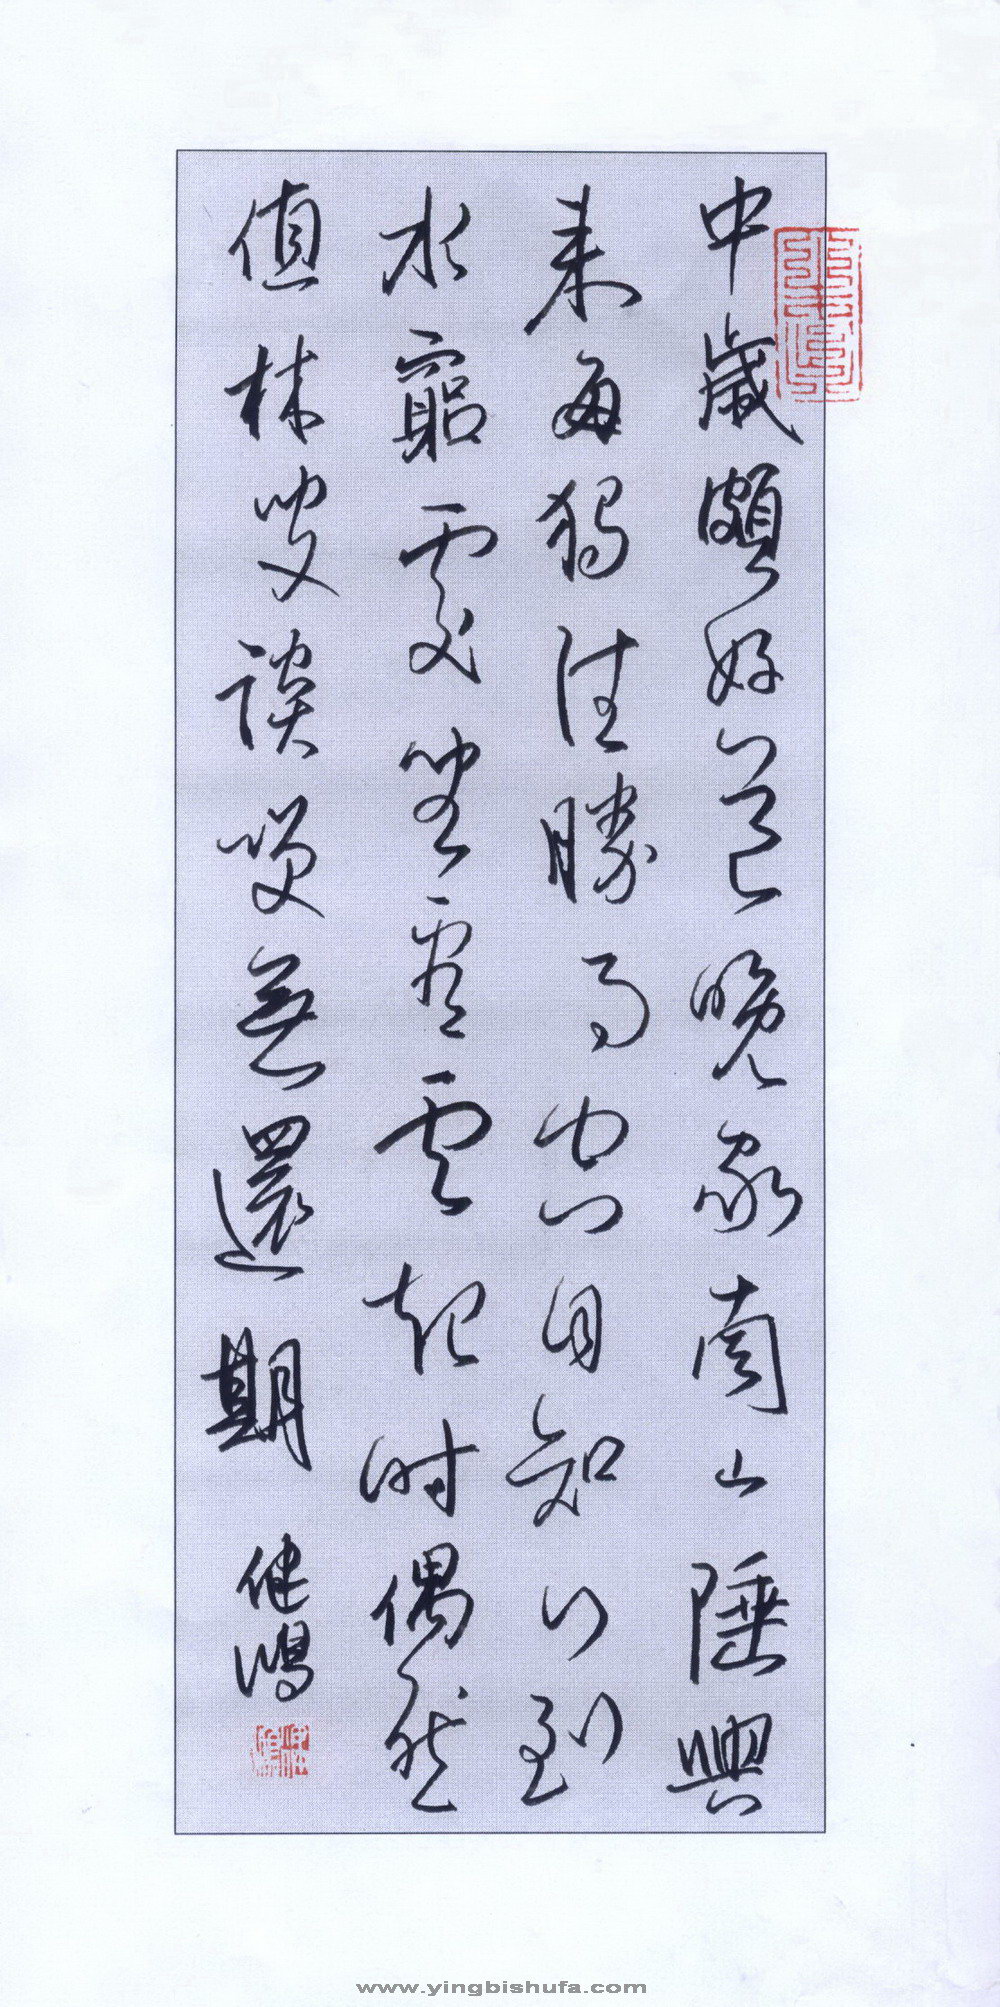 中歲頗好道晚家南山陲興
来每獨往勝事空自知行到
水窮處坐看雲起時偶然
值林叟談笑無還期
健鴻
www.yingbishufa.com